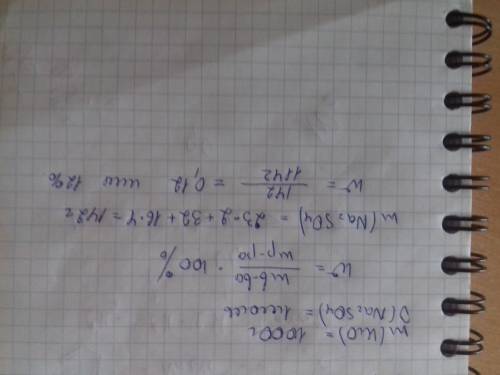 m(H₂O) = 1000г
ν(Na₂SO₄) = 1моль
W = mв-ва / mр-ра · 100%
m(Na₂SO₄) = 23·2 + 32 + 16·4 = 142г
W = 142 / 1142 = 0,12 или 12%